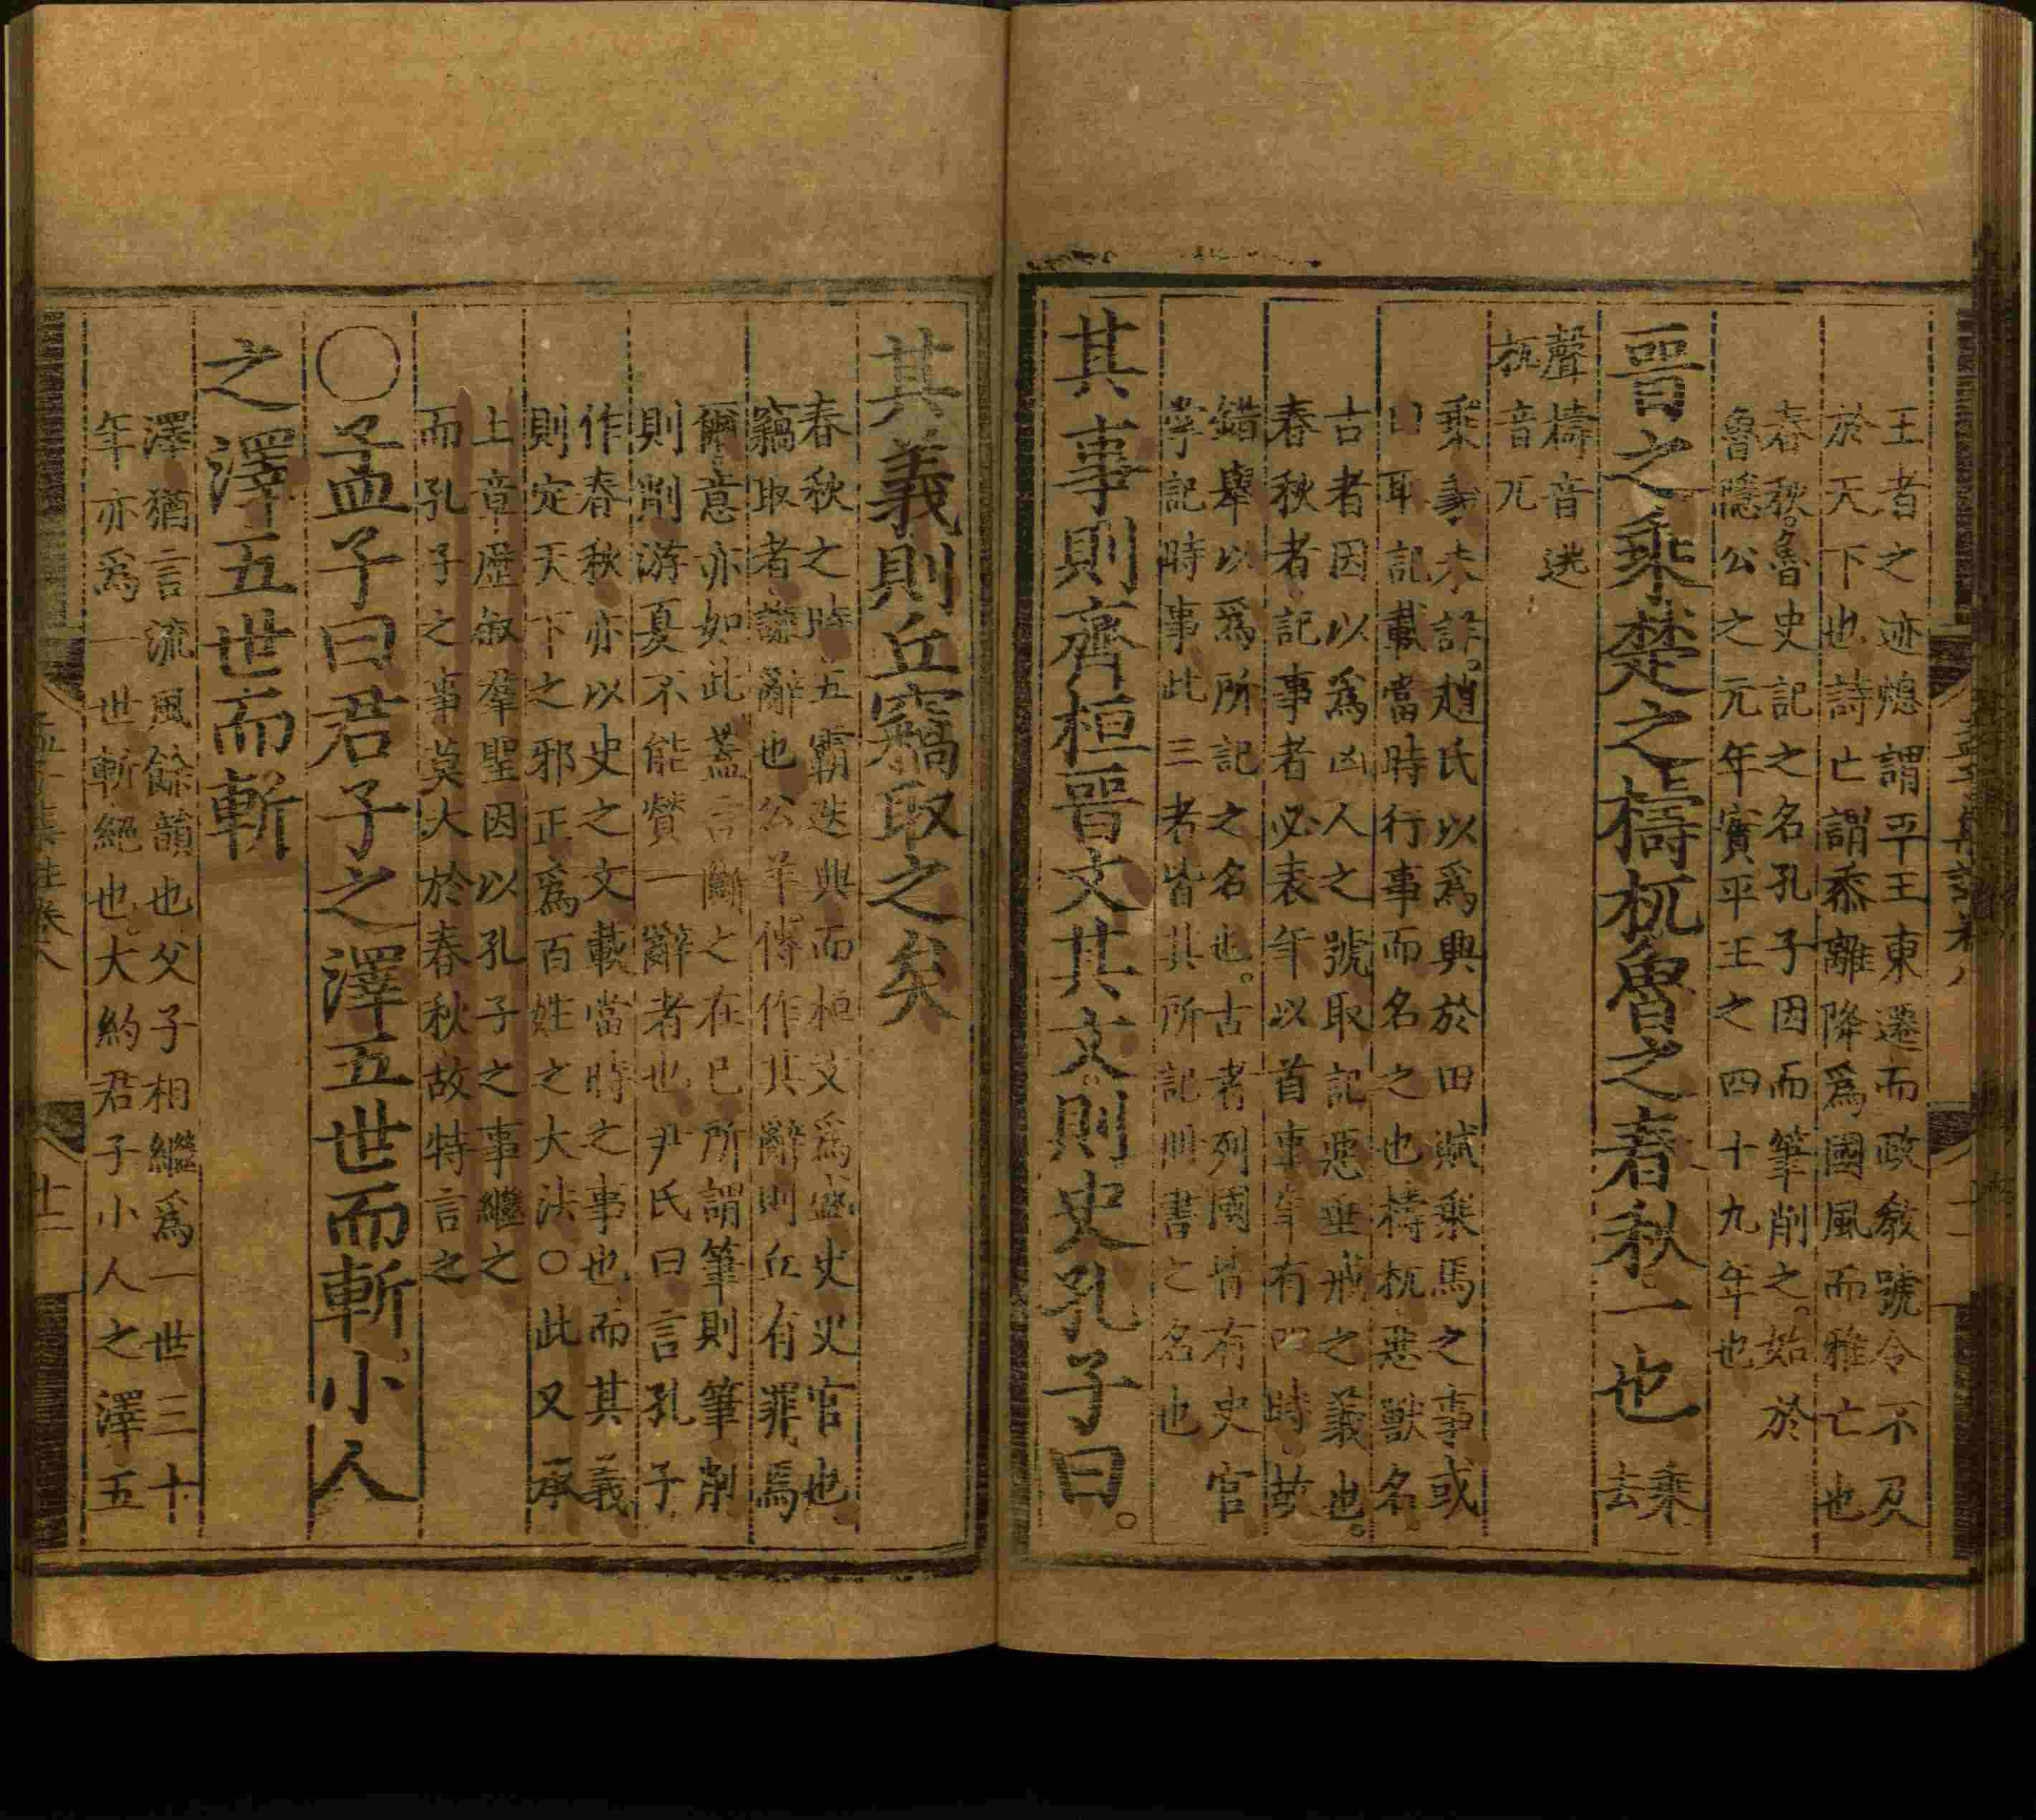 王者之迹熄謂平王東遷而政教號令不及
於天下也詩亡謂黍離降爲國風而雅亡也
春秋。魯史記之名孔子因而筆削之。始於
魯隱公之元年實平王之四十九年也
晉之乘楚之檮杌魯之春秋一也
乘去
聲檮音逃
杌音兀
乘義未詳。趙氏以爲興於田賦乘馬之事或
曰取記載當時行事而名之也檮杌惡獸名
古者因以爲凶人之號取記惡垂戒之義也。
春秋者記事者必表年以首事年有四時故
錯舉以爲所記之名也。古者列國皆有史官
掌記時事此三者皆其所記冊書之名也
其事則齊桓晉文其文則史孔子曰。
其義則丘竊取之矣
春秋之時五霸迭興而桓文爲盛史史官也
竊取者謙辭也公羊傳作其辭則丘有罪焉
爾意亦如此蓋言斷之在已所謂筆則筆削
則削游夏不能贊一辭者也尹氏曰言孔子
作春秋亦以史之文載當時之事也而其義
則定天下之邪正爲百姓之大法○此又承
上章歷叙羣聖因以孔子之事繼之
而孔子之事莫大於春秋故特言之
○孟子曰君子之澤五世而斬小人
之澤五世而斬
澤猶言流風餘韻也父子相繼爲一世三十
年亦爲一世斬絕也。大約君子小人之澤五
孟子集註卷八
十二